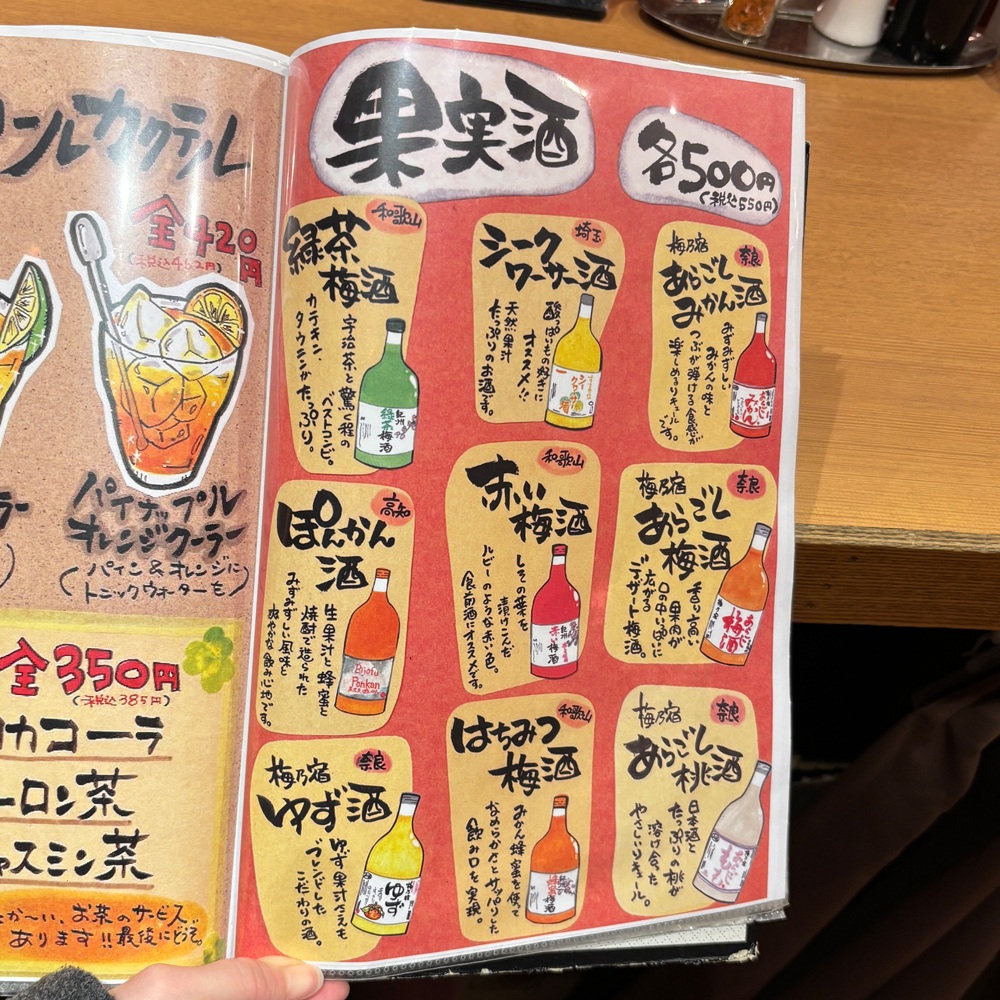 コールカクテル
全420円
(税込462円)
パイナップル
オレンジクーラー
(パイン&オレンジに
トニックウォーターを)
全350円
(税込385円)
カコーラ
ーロン茶
ャスミン茶
お茶のサービス
あります!!最後にどうぞ。
果実酒
各500円
(税込550円)
和歌山
緑茶
梅酒
宇治茶と驚く程の
ベストコンビ。
カテキン、
タウニンがたっぷり。
紀州
緑茶梅酒
埼玉
シークワーサー酒
酸っぱいもの好きに
オススメ!!
天然果汁
たっぷりのお酒です。
奈良
梅乃宿
あらごし
みかん酒
みずみずしい
みかんの味と
つぶが弾ける食感が
楽しめるリキュール
です。
あらごし
みかん
高知
ぽんかん
酒
生果汁と蜂蜜と
焼酎で造られた
みずみずしい風味と
爽やかな飲み心地です。
Ponkan
和歌山
赤い
梅酒
しその葉を
漬けこんだ
ルビーのような赤い色。
食前酒にオススメです。
紀州
赤い梅酒
奈良
梅乃宿
あらごし
梅酒
香り高い
果肉が
口の中いっぱいに
広がる
デザート梅酒。
あらごし
梅酒
奈良
梅乃宿
ゆず酒
ゆず果汁くえも
ブレンドした
こだわりの酒。
ゆず
和歌山
はちみつ
梅酒
みかん蜂蜜を使って
なめらかさとサッパリした
飲み口を実現。
蜂蜜梅酒
奈良
梅乃宿
あらごし
桃酒
日本酒と
たっぷりの桃が
溶け合った
やさしいリキュール。
あらごし
もも